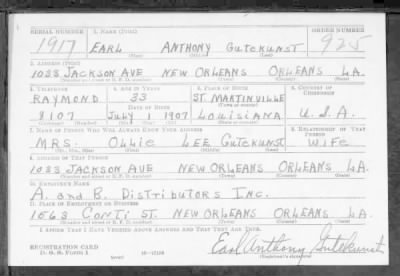 SERIAL NUMBER 1. NAME (Print) ORDER NUMBER
1917 EARL ANTHONY GUTEKUNST 925
(First) (Middle) (Last)
2. ADDRESS (Print)
1033 JACKSON AVE NEW ORLEANS ORLEANS LA.
(Number and street or R. F. D. number) (Town) (County) (State)
3. TELEPHONE 4. AGE IN YEARS 5. PLACE OF BIRTH 6. COUNTRY OF CITIZENSHIP
RAYMOND 33 ST. MARTINVILLE
DATE OF BIRTH (Town or county)
8107 JULY 1 1907 LOUISIANA U.S.A.
(Exchange) (Number) (Mo.) (Day) (Yr.) (State or country)
7. NAME OF PERSON WHO WILL ALWAYS KNOW YOUR ADDRESS 8. RELATIONSHIP OF THAT PERSON
MRS. OLLIE LEE GUTEKUNST WIFE
(Mr., Mrs., Miss) (First) (Middle) (Last)
9. ADDRESS OF THAT PERSON
1033 JACKSON AVE NEW ORLEANS ORLEANS LA.
(Number and street or R. F. D. number) (Town) (County) (State)
10. EMPLOYER'S NAME
A. AND B. DISTRIBUTORS INC.
11. PLACE OF EMPLOYMENT OR BUSINESS
CONTI ST. NEW ORLEANS ORLEANS LA.
(Number and street or R. F. D. number) (Town) (County) (State)
I AFFIRM THAT I HAVE VERIFIED ABOVE ANSWERS AND THAT THEY ARE TRUE.
REGISTRATION CARD
D. S. S. Form 1 (over) Earl Anthony Gutekunst
(Registrant's signature)